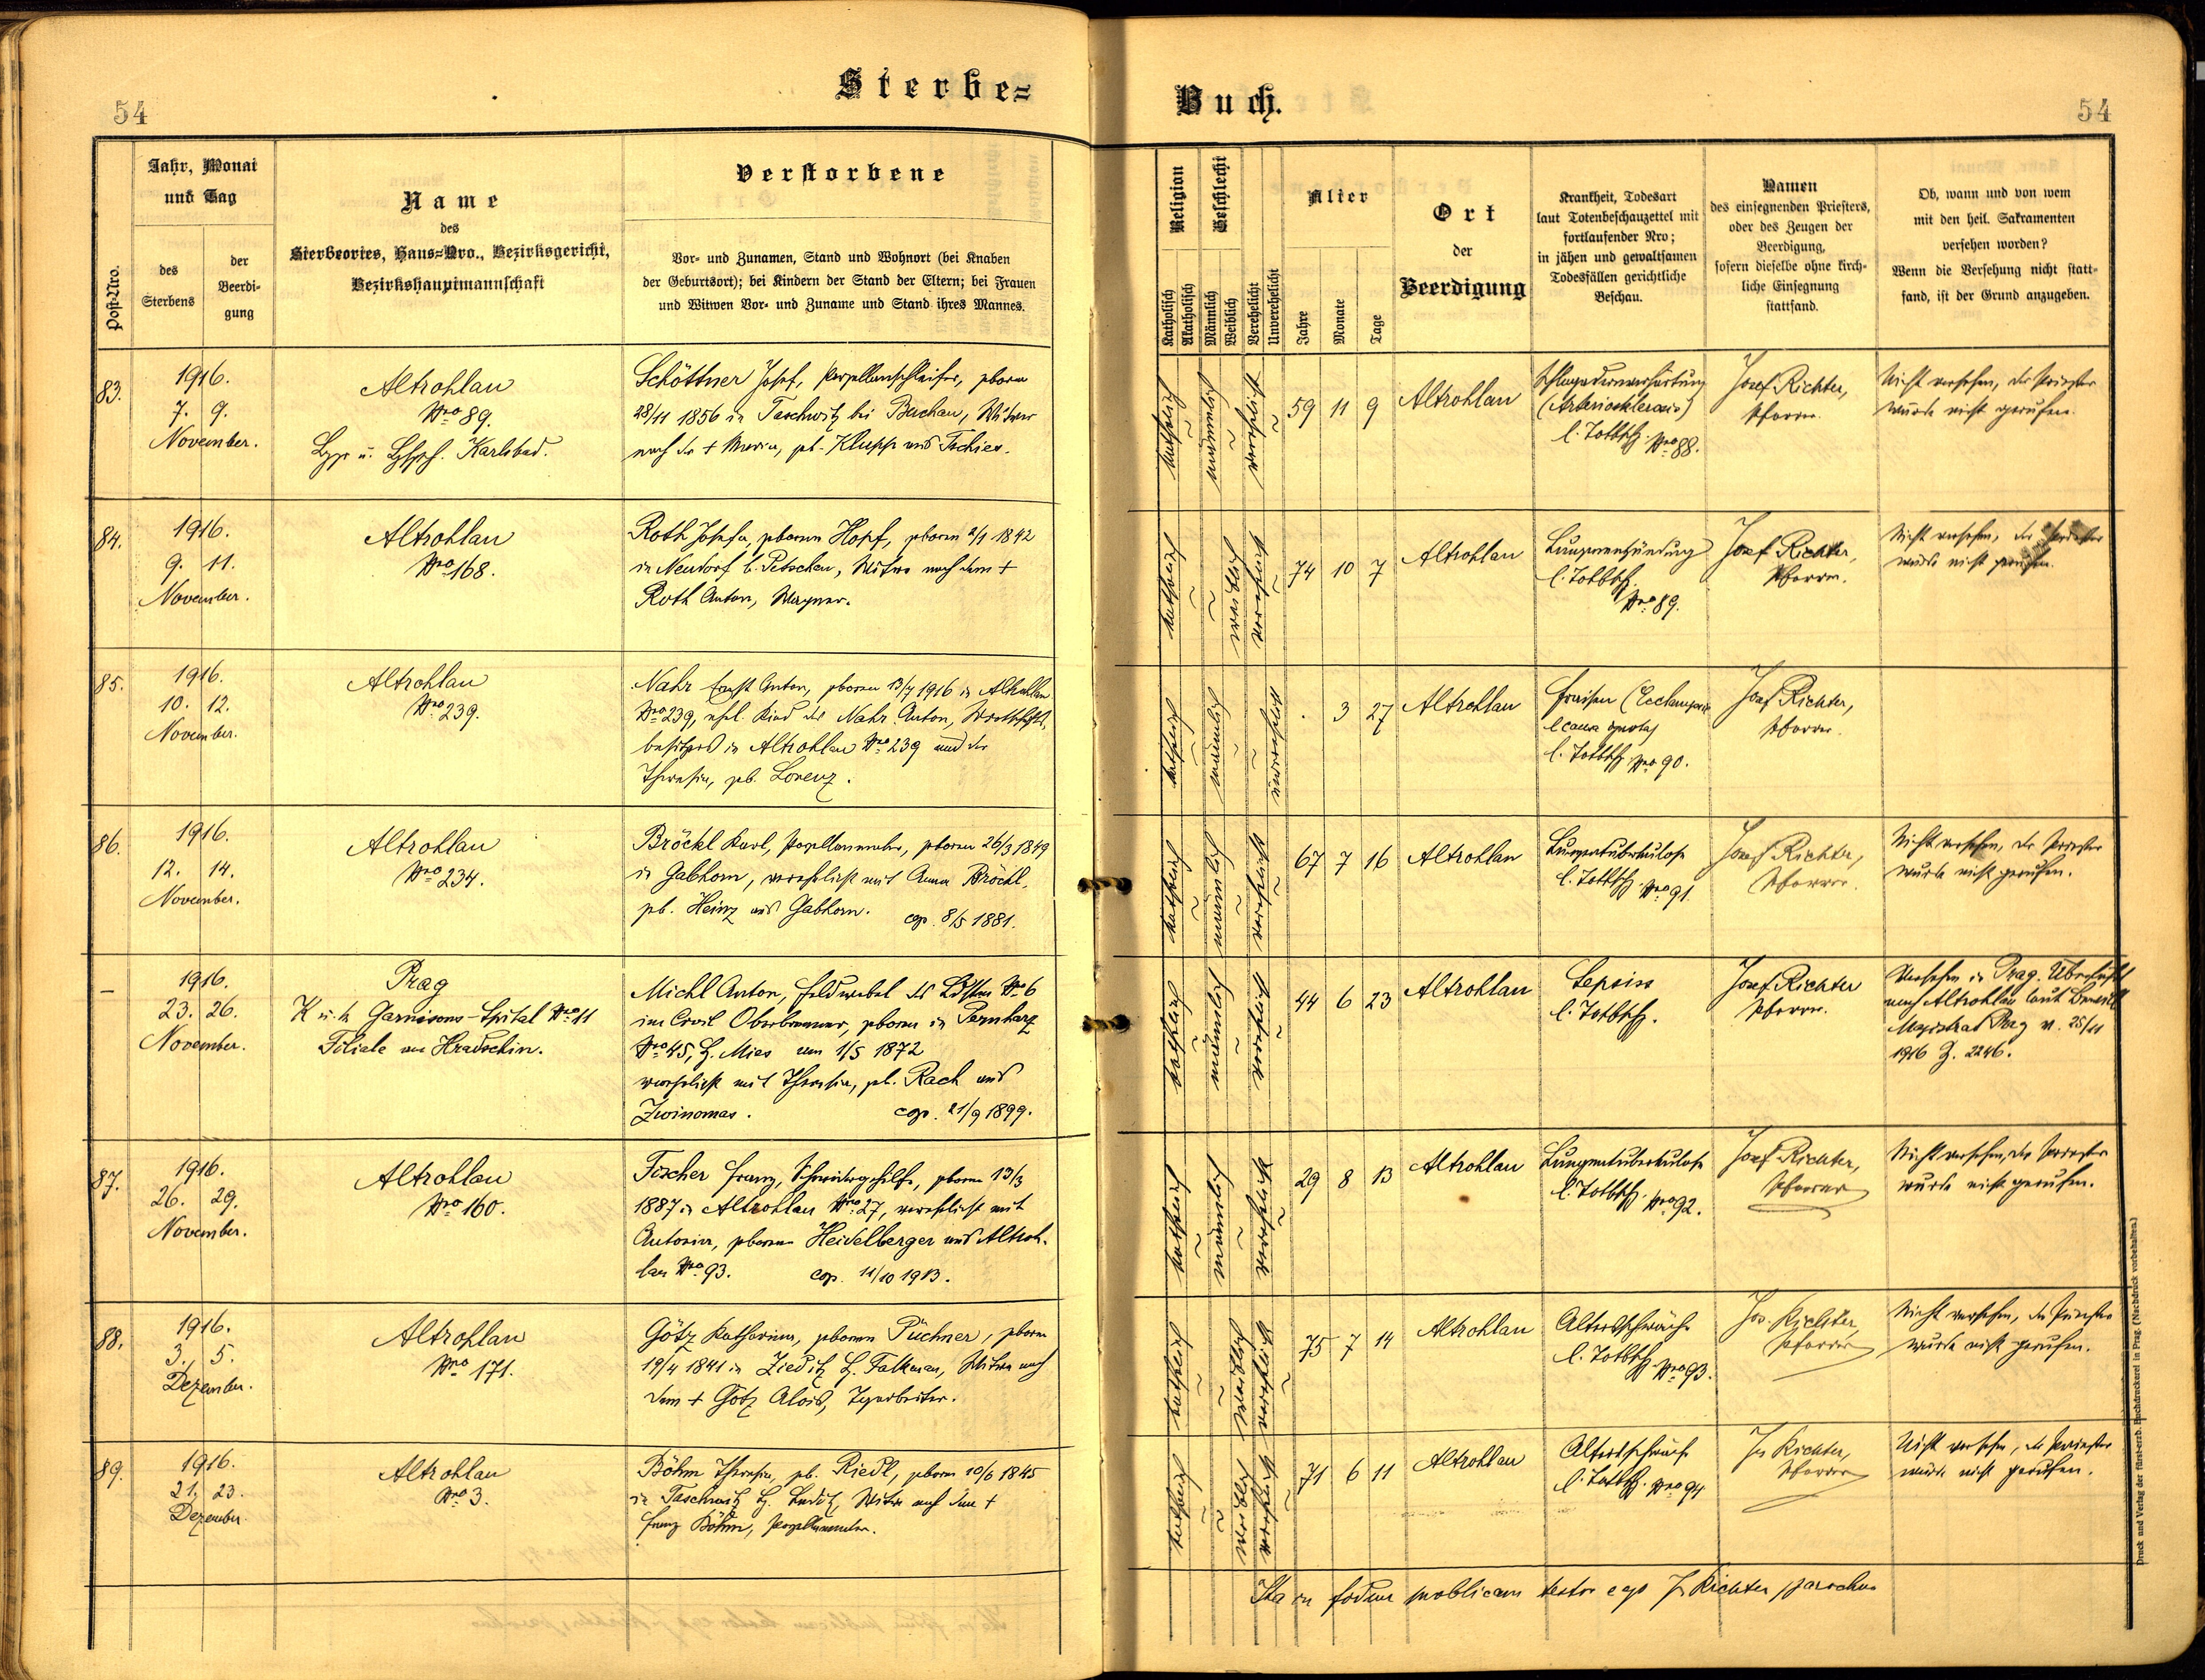 Sterbe=
Buch.
54
54
Post-Nro.
Jahr, Monat
und Tag
des
Sterbens
der
Beerdi-
gung
Name
des
Sterbeortes, Haus=Nro., Bezirksgericht,
Bezirkshauptmannschaft
Verstorbene
Vor- und Zunamen, Stand und Wohnort (bei Knaben
der Geburtsort); bei Kindern der Stand der Eltern; bei Frauen
und Witwen Vor- und Zuname und Stand ihres Mannes.
Religion
Katholisch
Akatholisch
Geschlecht
Männlich
Weiblich
Verehelicht
Unverehelicht
Alter
Jahre
Monate
Tage
Ort
der
Beerdigung
Krankheit, Todesart
laut Totenbeschauzettel mit
fortlaufender Nro;
in jähen und gewaltsamen
Todesfällen gerichtliche
Beschau.
Namen
des einsegnenden Priesters,
oder des Zeugen der
Beerdigung,
sofern dieselbe ohne kirch-
liche Einsegnung
stattfand.
Ob, wann und von wem
mit den heil. Sakramenten
versehen worden?
Wenn die Versehung nicht statt-
fand, ist der Grund anzugeben.
83.
1916.
7. 9.
November.
Altrohlau
Nro 89.
Karlsbad.
Schöttner Josef, Porzellanschleifer, geboren
28/11 1856 in Taschwitz bei Buchau, Witwer
nach der + Maria, geb. Klupp aus Tschies.
katholisch
männlich
verehelicht
59 11 9
Altrohlau
Schlagadernverhärtung
(Arteriosklerosis)
l. Totbsch. Nro 88.
Josef Richter,
Pfarrer.
Nicht versehen, der Priester
wurde nicht gerufen.
84.
1916.
9. 11.
November.
Altrohlau
Nro 168.
Roth Josefa, geborene Hopf, geboren 2/1 1842
in Neudorf b. Petschau, Witwe nach dem +
Roth Anton, Wagner.
katholisch
weiblich
verehelicht
74 10 7
Altrohlau
Lungenentzündung
l. Totbsch.
Nro 89.
Josef Richter,
Pfarrer.
Nicht versehen, der Priester
wurde nicht gerufen.
85.
1916.
10. 12.
November.
Altrohlau
Nro 239.
Nahr Ernst Anton, geboren 13/7 1916 in Altrohlau
Nro 239, ehel. Kind des Nahr Anton, Wirtschafts-
besitzers in Altrohlau Nro 239 und der
Theresia, geb. Lorenz.
katholisch
männlich
unverehelicht
3 27
Altrohlau
Fraisen
l. Totbsch. Nro 90.
Josef Richter,
Pfarrer.
86.
1916.
12. 14.
November.
Altrohlau
Nro 234.
Bröckl Karl, Porzellanmaler, geboren 26/3 1849
in Gabhorn, verehelicht mit Anna Bröckl,
geb. Heinz aus Gabhorn. cop. 8/5 1881.
katholisch
männlich
verehelicht
67 7 16
Altrohlau
Lungentuberkulose
l. Totbsch. Nro 91.
Josef Richter,
Pfarrer.
Nicht versehen, der Priester
wurde nicht gerufen.
–
1916.
23. 26.
November.
Prag
K. u. k. Garnisons-Spital Nro 11
Filiale am Hradschin.
Michl Anton, Feldwebel des Nro 6
im Civil Oberbrenner, geboren in Pernharz
Nro 45, B. Mies am 1/5 1872
verehelicht mit Theresia, geb. Rach aus
Zwinomas. cop. 21/9 1899.
katholisch
männlich
verehelicht
44 6 23
Altrohlau
Sepsis
l. Totbsch.
Josef Richter
Pfarrer.
Versehen in Prag. Überführt
nach Altrohlau laut
Magistrat Prag v. 25/11
1916 Z. 2246.
87.
1916.
26. 29.
November.
Altrohlau
Nro 160.
Fischer Franz, geboren 13/3
1887 in Altrohlau Nro 27, verehelicht mit
Antonia, geborene Heidelberger aus Altroh-
lau Nro 93. cop. 11/10 1913.
katholisch
männlich
verehelicht
29 8 13
Altrohlau
Lungentuberkulose
l. Totbsch. Nro 92.
Josef Richter,
Pfarrer
Nicht versehen, der Priester
wurde nicht gerufen.
88.
1916.
3. 5.
Dezember.
Altrohlau
Nro 171.
Götz Katharina, geborene Püchner, geboren
19/4 1841 in Zieditz B. Falkenau, Witwe nach
dem + Götz Alois, Tagarbeiter.
katholisch
weiblich
verehelicht
75 7 14
Altrohlau
Altersschwäche
l. Totbsch. Nro 93.
Jos. Richter,
Pfarrer
Nicht versehen, der Priester
wurde nicht gerufen.
89.
1916.
21. 23.
Dezember
Altrohlau
Nro 3.
Böhm Theresia, geb. Riedl, geboren 10/6 1845
in Taschwitz B. Luditz, Witwe nach dem +
Franz Böhm, Porzellanmaler.
katholisch
weiblich
verehelicht
71 6 11
Altrohlau
Altersschwäche
l. Totbsch. Nro 94
Jos Richter,
Pfarrer
Nicht versehen, der Priester
wurde nicht gerufen.
Ita in fidem publicam testor ego Jos Richter parochus
Druck und Verlag der fürst-erzb. Buchdruckerei in Prag. (Nachdruck vorbehalten.)